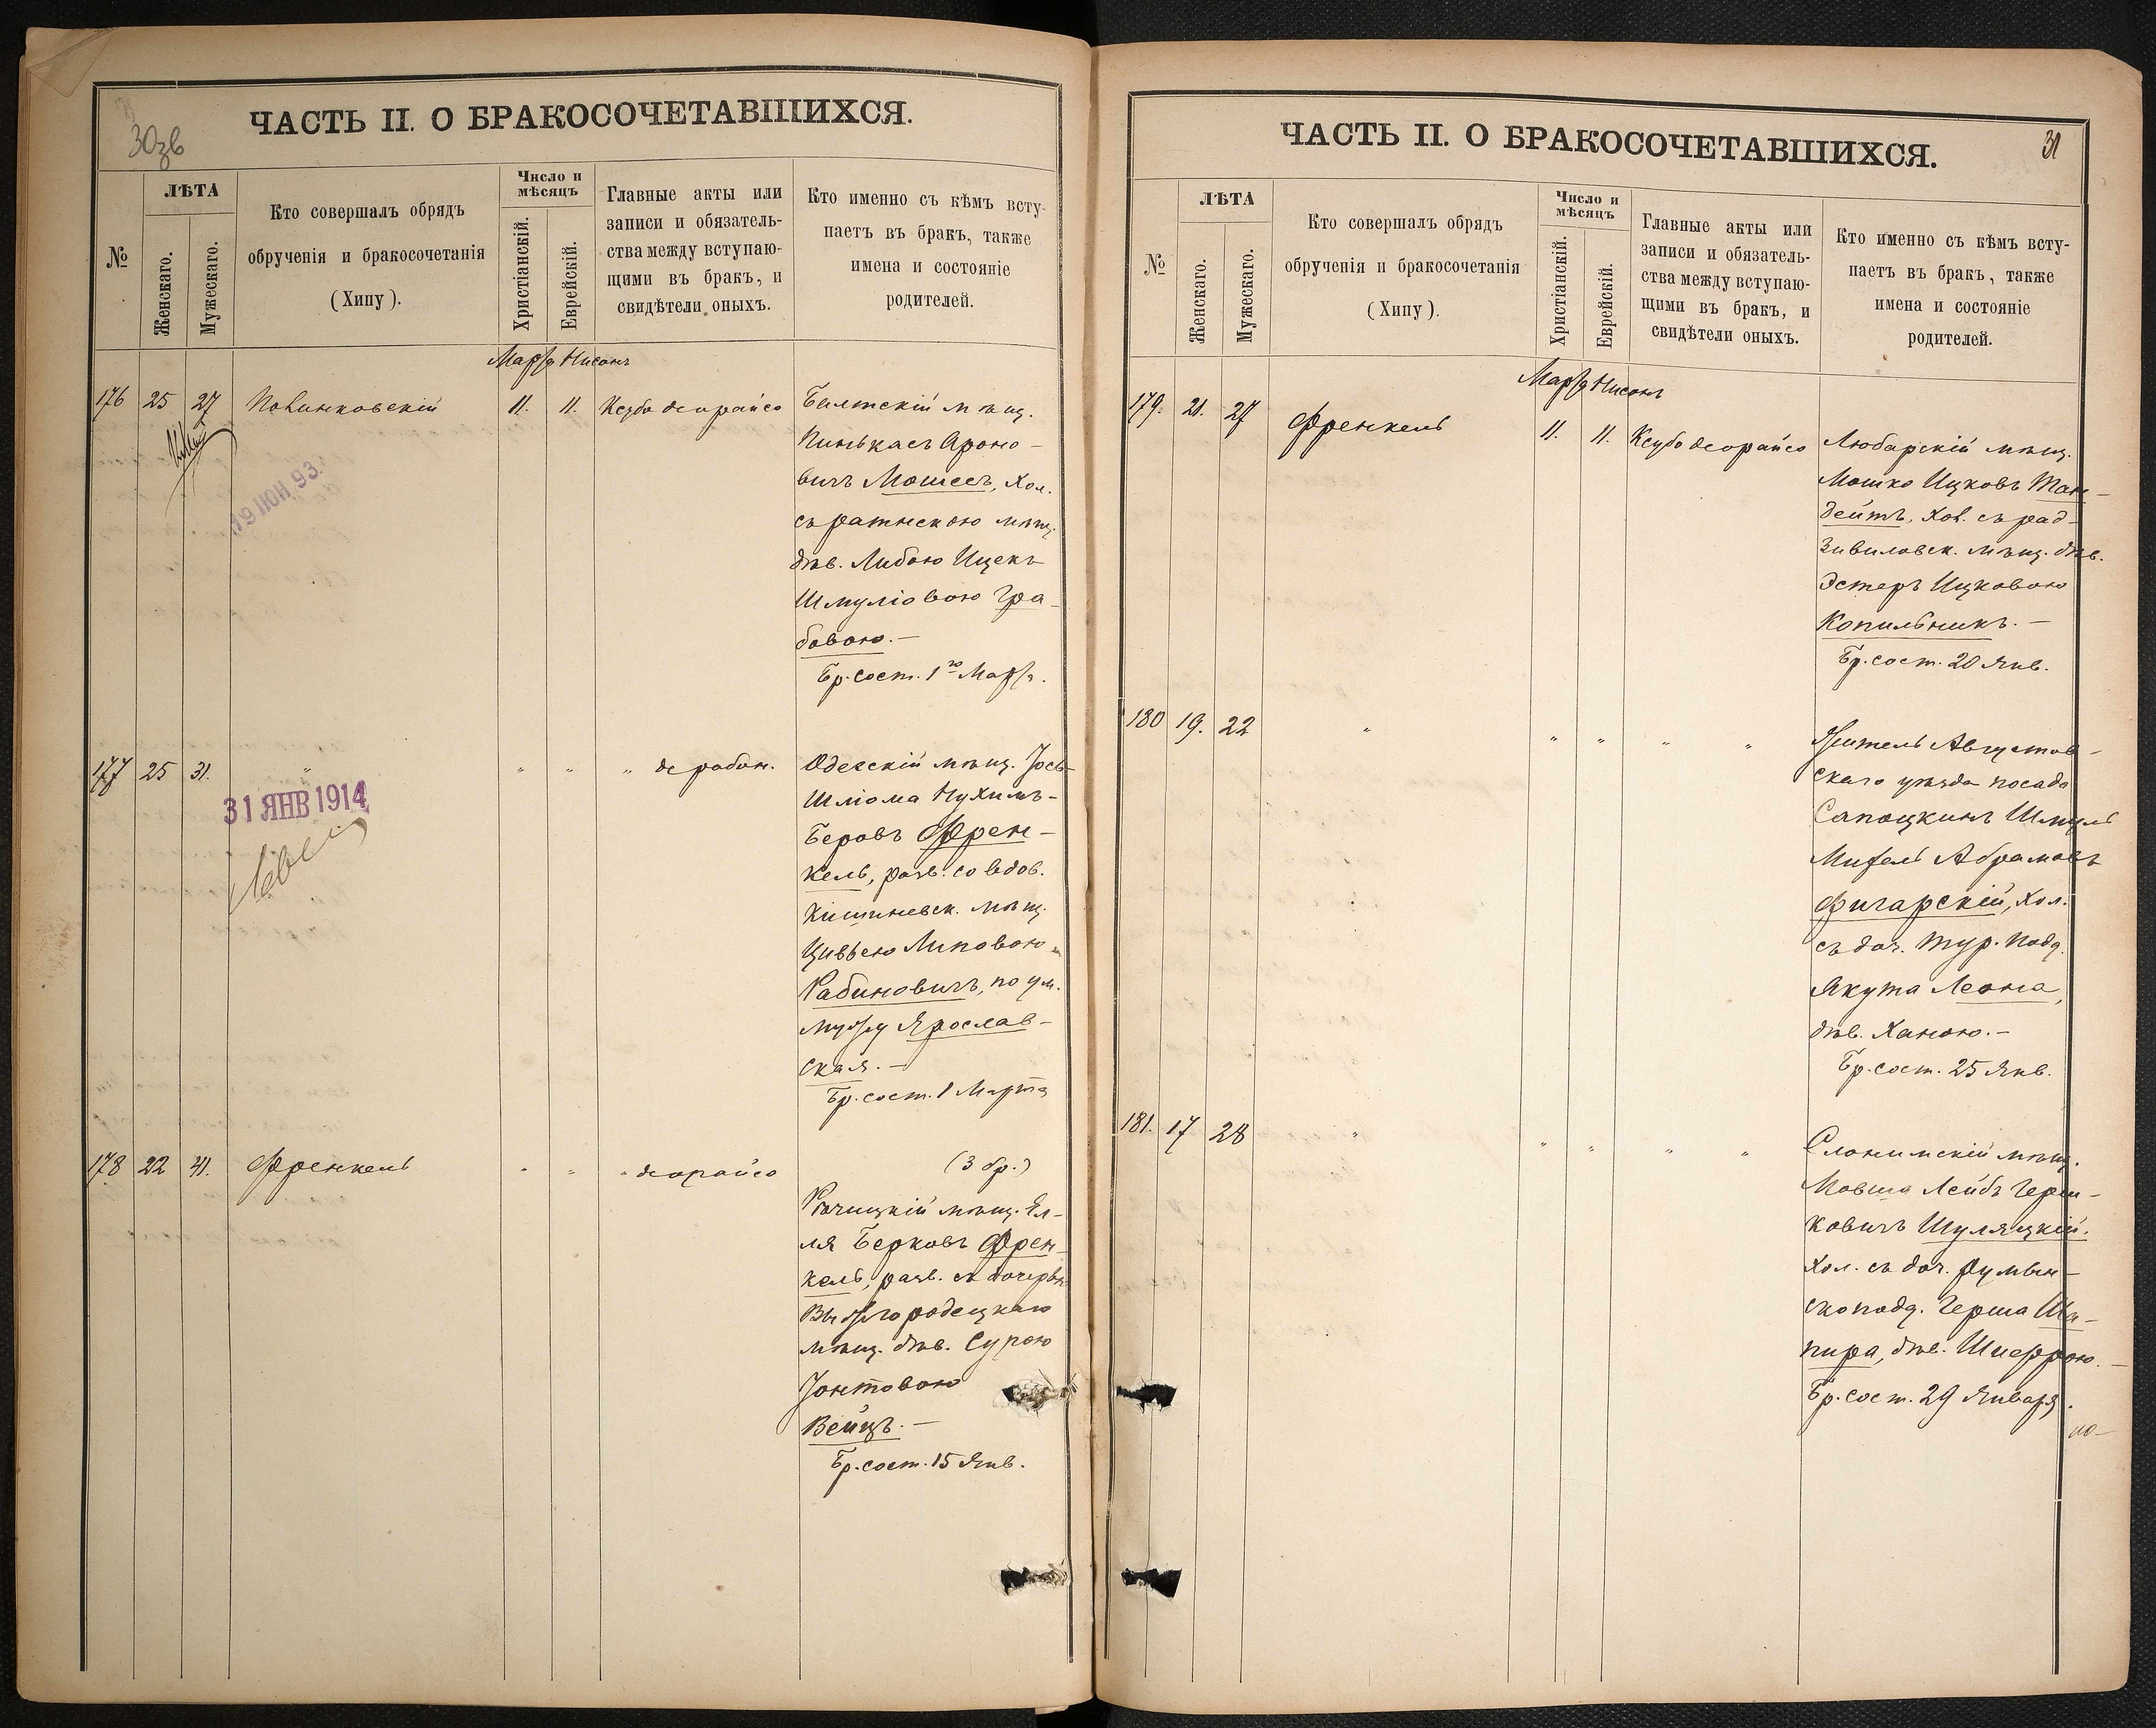 ЧАСТЬ II. О БРАКОСОЧЕТАВШИХСЯ.
30зв
№
ЛѢТА
Женскаго.
Мужескаго.
Кто совершалъ обрядъ
обрученія и бракосочетанія
(Хипу).
Число и
мѣсяцъ
Христіанскій.
Еврейскій.
Главные акты или
записи и обязатель-
ства между вступаю-
щими въ бракъ, и
свидѣтели оныхъ.
Кто именно съ кѣмъ всту-
паетъ въ бракъ, также
имена и состояніе
родителей.
Марта Нисонъ
176 25 27 11. 11. Ксубо деорайсо Балтскій мѣщ.
Пинькасъ Ароно-
вичъ Мошесъ, хол.
съ ратнескою мѣщ.
дѣв. Либою Ицекъ
Шмуліовою Гра-
бовою.—
Бр. сост. 1го Марта.
19 ІЮН 93.
177 25 31. " " " " де рабон. Одесскій мѣщ. Іось
Шліома Нухимъ-
Беровъ Френ-
кель, разв. со вдов.
Кишиневск. мѣщ.
Цивьею Липовою
Рабиновичъ, по ум.
мужу Ярослав-
ская.—
Бр. сост. 1 Марта
31 ЯНВ 1914
178 22 41. Френкель " " " деорайсо (3 бр.)
Рѣчицкій мѣщ. Ел-
ля Берковъ Френ-
кель, разв. съ дочерью
Вышгородецкаго
мѣщ. дѣв. Сурою
Іонтовою
Вейцъ.—
Бр. сост. 15 Янв.
ЧАСТЬ II. О БРАКОСОЧЕТАВШИХСЯ.
31
№
ЛѢТА
Женскаго.
Мужескаго.
Кто совершалъ обрядъ
обрученія и бракосочетанія
(Хипу).
Число и
мѣсяцъ
Христіанскій.
Еврейскій.
Главные акты или
записи и обязатель-
ства между вступаю-
щими въ бракъ, и
свидѣтели оныхъ.
Кто именно съ кѣмъ всту-
паетъ въ бракъ, также
имена и состояніе
родителей.
Марта Нисонъ
179. 21. 27 Френкель 11. 11. Ксубо деорайсо Любарскій мѣщ.
Мошко Ицковъ Тан-
дейтъ, хол. съ рад-
зивиловск. мѣщ. дѣв.
Эстеръ Ицковою
Копильникъ.—
Бр. сост. 20 Янв.
180 19. 22 " " " " " Житель Августов-
скаго уѣзда посада
Сапоцкинъ Шмуль
Михель Абрамовъ
Фигарскій, хол.
съ доч. тур. подд.
Якута Леона,
дѣв. Ханою.—
Бр. сост. 25 Янв.
181. 17 28 " " " " " Слонимскій мѣщ.
Мовша Лейбъ Герш-
ковичъ Шуляцкій.
хол. съ доч. румын-
ско подд. Герша Ша-
пира, дѣв.
Бр. сост. 29 Января.